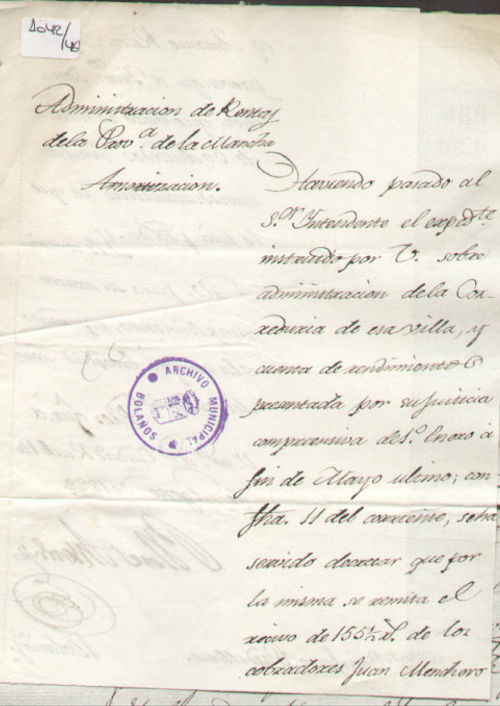 D042/40
Administracion de Rentas
dela Prov.a de la Mancha
Amortizacion.
Haviendo pasado al
S.or Yntendente el exped.te
instruido por V. sobre
administracion de la Cor-
reduria de esa villa, y
cuenta de rendimientos
presentada por su justicia
comprensiva de 1.o Enero a
fin de Mayo ultimo; con
fha. 11 del corriente, se ha
servido decretar que por
la misma se remita el
recivo de 155 1/2 r.s de los
cobradores Juan
ARCHIVO MUNICIPAL
BOLAÑOS